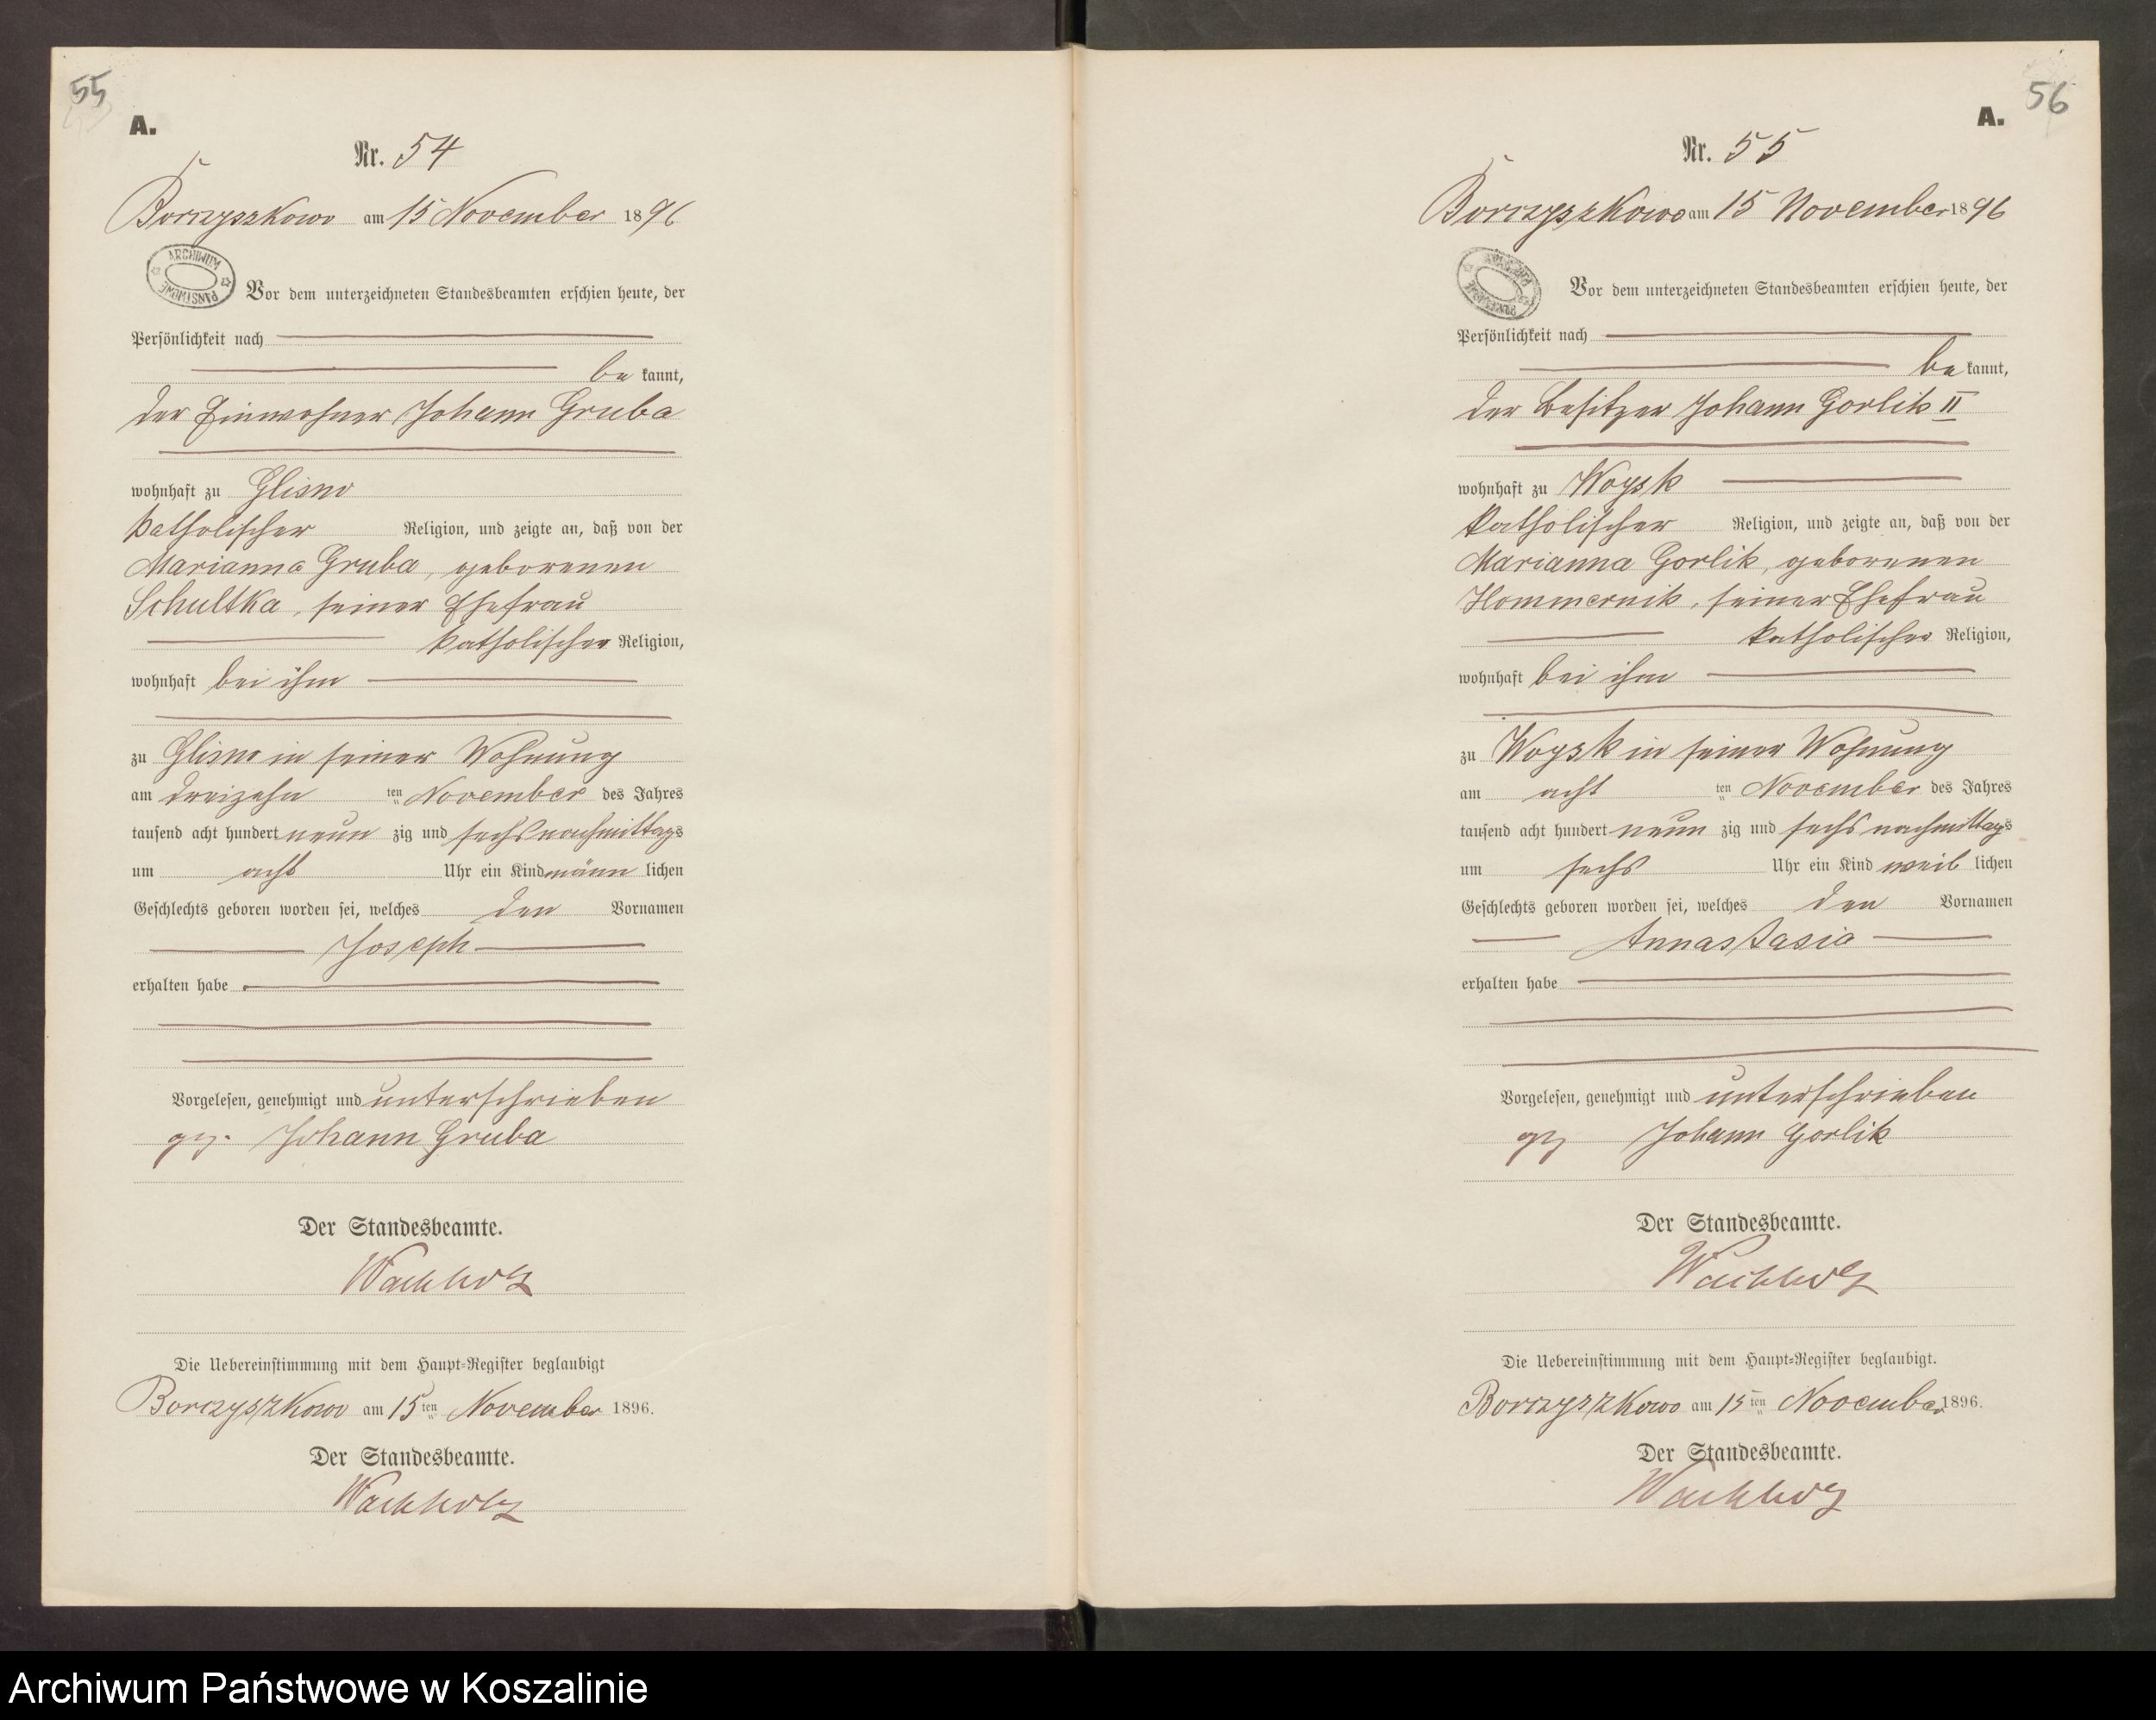 55
A.
Nr. 54
Borzyszkowo am 15 November 1896
ARCHIWUM PAŃSTWOWE
Vor dem unterzeichneten Standesbeamten erschien heute, der
Persönlichkeit nach
be kannt,
der Einwohner Johann Gruba
wohnhaft zu Glisno
katholischer Religion, und zeigte an, daß von der
Marianna Gruba, geborenen
Schultka, seiner Ehefrau
katholischer Religion,
wohnhaft bei ihm
zu Glisno in seiner Wohnung
am dreizehn ten November des Jahres
tausend acht hundert neun zig und sechs nachmittags
um acht Uhr ein Kind männ lichen
Geschlechts geboren worden sei, welches den Vornamen
Joseph
erhalten habe
Vorgelesen, genehmigt und unterschrieben
gez. Johann Gruba
Der Standesbeamte.
Wachholz
Die Uebereinstimmung mit dem Haupt-Register beglaubigt
Borzyszkowo am 15ten November 1896.
Der Standesbeamte.
Wachholz
56
A.
Nr. 55
Borzyszkowo am 15 November 1896
Vor dem unterzeichneten Standesbeamten erschien heute, der
Persönlichkeit nach
be kannt,
der Besitzer Johann Gorlik II
wohnhaft zu Woysk
katholischer Religion, und zeigte an, daß von der
Marianna Gorlik, geborenen
Hommernik, seiner Ehefrau
katholischer Religion,
wohnhaft bei ihm
zu Woysk in seiner Wohnung
am acht ten November des Jahres
tausend acht hundert neun zig und sechs nachmittags
um sechs Uhr ein Kind weib lichen
Geschlechts geboren worden sei, welches den Vornamen
Annastasia
erhalten habe
Vorgelesen, genehmigt und unterschrieben
gez Johann Gorlik
Der Standesbeamte.
Wachholz
Die Uebereinstimmung mit dem Haupt-Register beglaubigt.
Borzyszkowo am 15ten November 1896.
Der Standesbeamte.
Wachholz
Archiwum Państwowe w Koszalinie